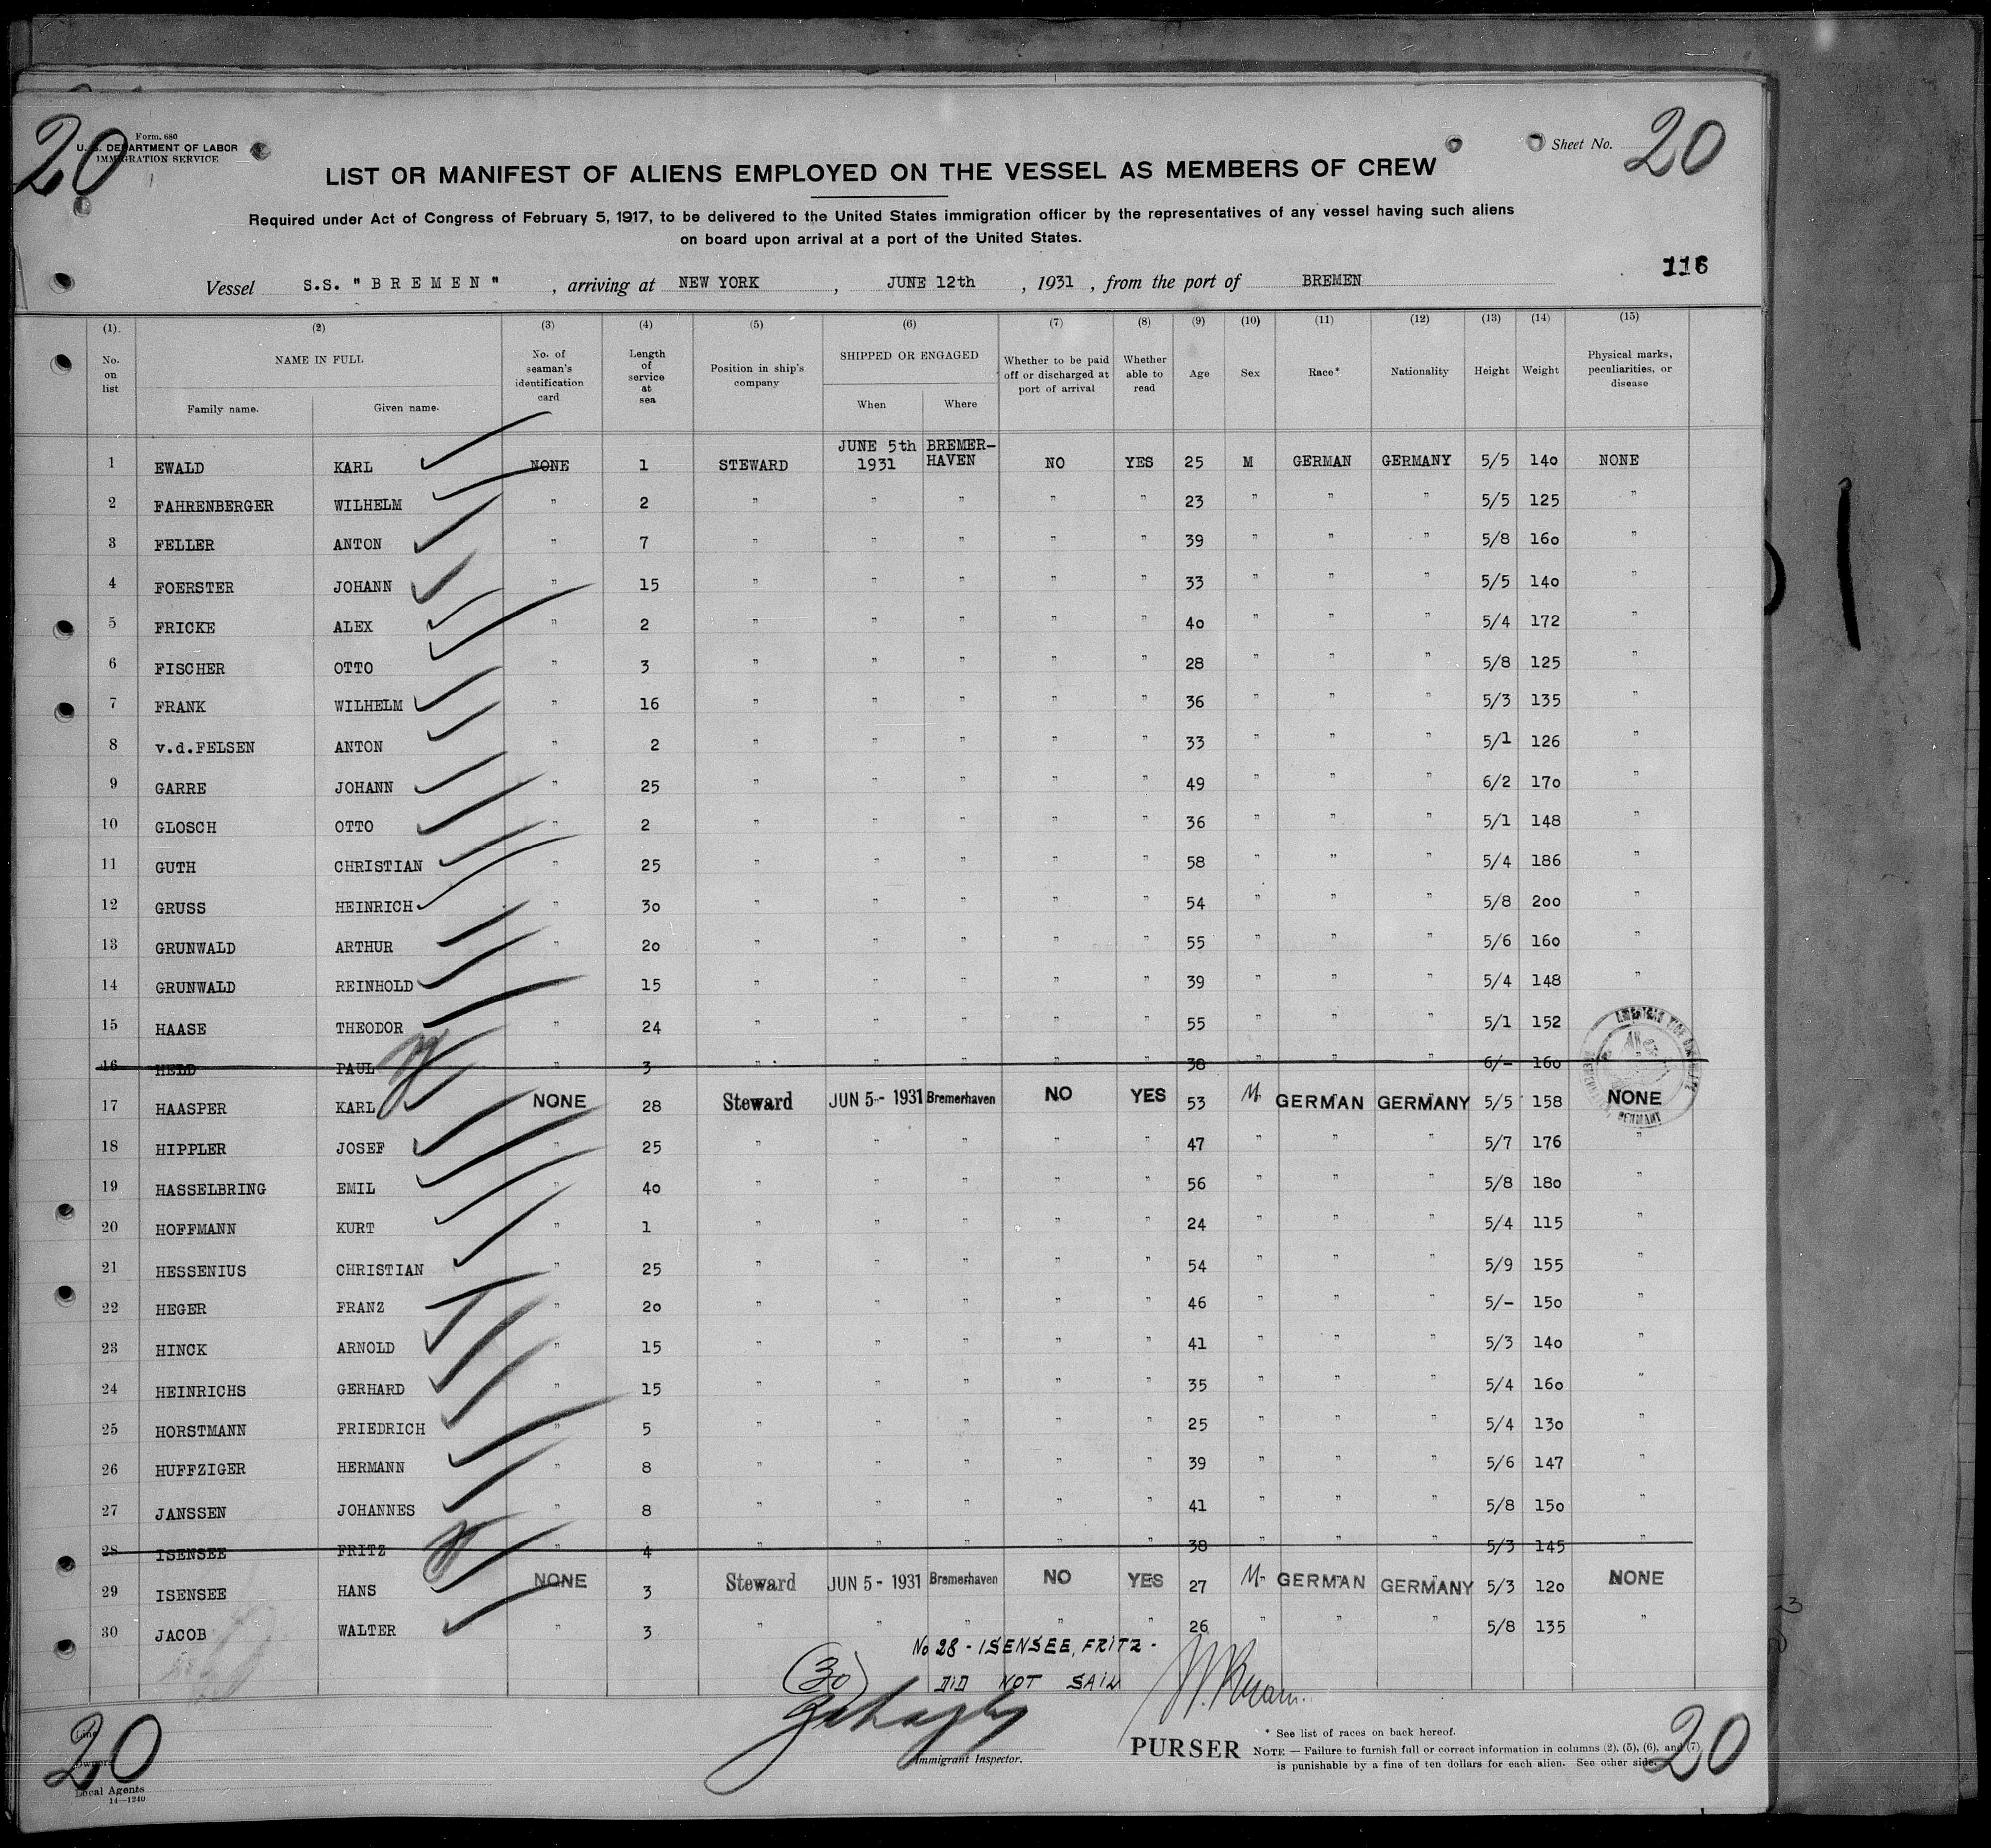 20
Form. 680
U. S. DEPARTMENT OF LABOR
IMMIGRATION SERVICE
Sheet No. 20
LIST OR MANIFEST OF ALIENS EMPLOYED ON THE VESSEL AS MEMBERS OF CREW
Required under Act of Congress of February 5, 1917, to be delivered to the United States immigration officer by the representatives of any vessel having such aliens
on board upon arrival at a port of the United States.
116
Vessel S.S. "BREMEN", arriving at NEW YORK, JUNE 12th, 1931, from the port of BREMEN
(1) (2) (3) (4) (5) (6) (7) (8) (9) (10) (11) (12) (13) (14) (15)
No. on list NAME IN FULL Family name. Given name. No. of seaman's identification card Length of service at sea Position in ship's company SHIPPED OR ENGAGED When Where Whether to be paid off or discharged at port of arrival Whether able to read Age Sex Race* Nationality Height Weight Physical marks, peculiarities, or disease
1 EWALD KARL NONE 1 STEWARD JUNE 5th 1931 BREMER-HAVEN NO YES 25 M GERMAN GERMANY 5/5 140 NONE
2 FAHRENBERGER WILHELM " 2 " " " " " 23 " " " 5/5 125 "
3 FELLER ANTON " 7 " " " " " 39 " " " 5/8 160 "
4 FOERSTER JOHANN " 15 " " " " " 33 " " " 5/5 140 "
5 FRICKE ALEX " 2 " " " " " 40 " " " 5/4 172 "
6 FISCHER OTTO " 3 " " " " " 28 " " " 5/8 125 "
7 FRANK WILHELM " 16 " " " " " 36 " " " 5/3 135 "
8 v.d.FELSEN ANTON " 2 " " " " " 33 " " " 5/1 126 "
9 GARRE JOHANN " 25 " " " " " 49 " " " 6/2 170 "
10 GLOSCH OTTO " 2 " " " " " 36 " " " 5/1 148 "
11 GUTH CHRISTIAN " 25 " " " " " 58 " " " 5/4 186 "
12 GRUSS HEINRICH " 30 " " " " " 54 " " " 5/8 200 "
13 GRUNWALD ARTHUR " 20 " " " " " 55 " " " 5/6 160 "
14 GRUNWALD REINHOLD " 15 " " " " " 39 " " " 5/4 148 "
15 HAASE THEODOR " 24 " " " " " 55 " " " 5/1 152 "
16 HELD PAUL " 3 " " " " " 38 " " " 6/- 160 "
17 HAASPER KARL NONE 28 Steward JUN 5 - 1931 Bremerhaven NO YES 53 M GERMAN GERMANY 5/5 158 NONE
GERMANY
18 HIPPLER JOSEF " 25 " " " " " 47 " " " 5/7 176 "
19 HASSELBRING EMIL " 40 " " " " " 56 " " " 5/8 180 "
20 HOFFMANN KURT " 1 " " " " " 24 " " " 5/4 115 "
21 HESSENIUS CHRISTIAN " 25 " " " " " 54 " " " 5/9 155 "
22 HEGER FRANZ " 20 " " " " " 46 " " " 5/- 150 "
23 HINCK ARNOLD " 15 " " " " " 41 " " " 5/3 140 "
24 HEINRICHS GERHARD " 15 " " " " " 35 " " " 5/4 160 "
25 HORSTMANN FRIEDRICH " 5 " " " " " 25 " " " 5/4 130 "
26 HUFFZIGER HERMANN " 8 " " " " " 39 " " " 5/6 147 "
27 JANSSEN JOHANNES " 8 " " " " " 41 " " " 5/8 150 "
28 ISENSEE FRITZ " 4 " " " " " 38 " " " 5/3 145 "
29 ISENSEE HANS NONE 3 Steward JUN 5 - 1931 Bremerhaven NO YES 27 M GERMAN GERMANY 5/3 120 NONE
30 JACOB WALTER " 3 " " " " " 26 " " " 5/8 135 "
No 28 - ISENSEE, FRITZ -
DID NOT SAIL
(30)
Immigrant Inspector.
PURSER
* See list of races on back hereof.
NOTE — Failure to furnish full or correct information in columns (2), (5), (6), and (7)
is punishable by a fine of ten dollars for each alien. See other side.
Line
Owners
Local Agents
14—1240
20
20